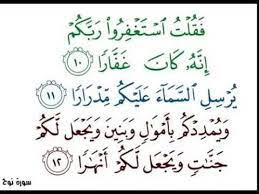 فَقُلْتُ اسْتَغْفِرُوا رَبَّكُمْ
إِنَّهُ كَانَ غَفَّارًا ١٠
يُرْسِلِ السَّمَاءَ عَلَيْكُم مِّدْرَارًا ١١
وَيُمْدِدْكُم بِأَمْوَالٍ وَبَنِينَ وَيَجْعَل لَّكُمْ
جَنَّاتٍ وَيَجْعَل لَّكُمْ أَنْهَارًا ١٢
سورة نوح